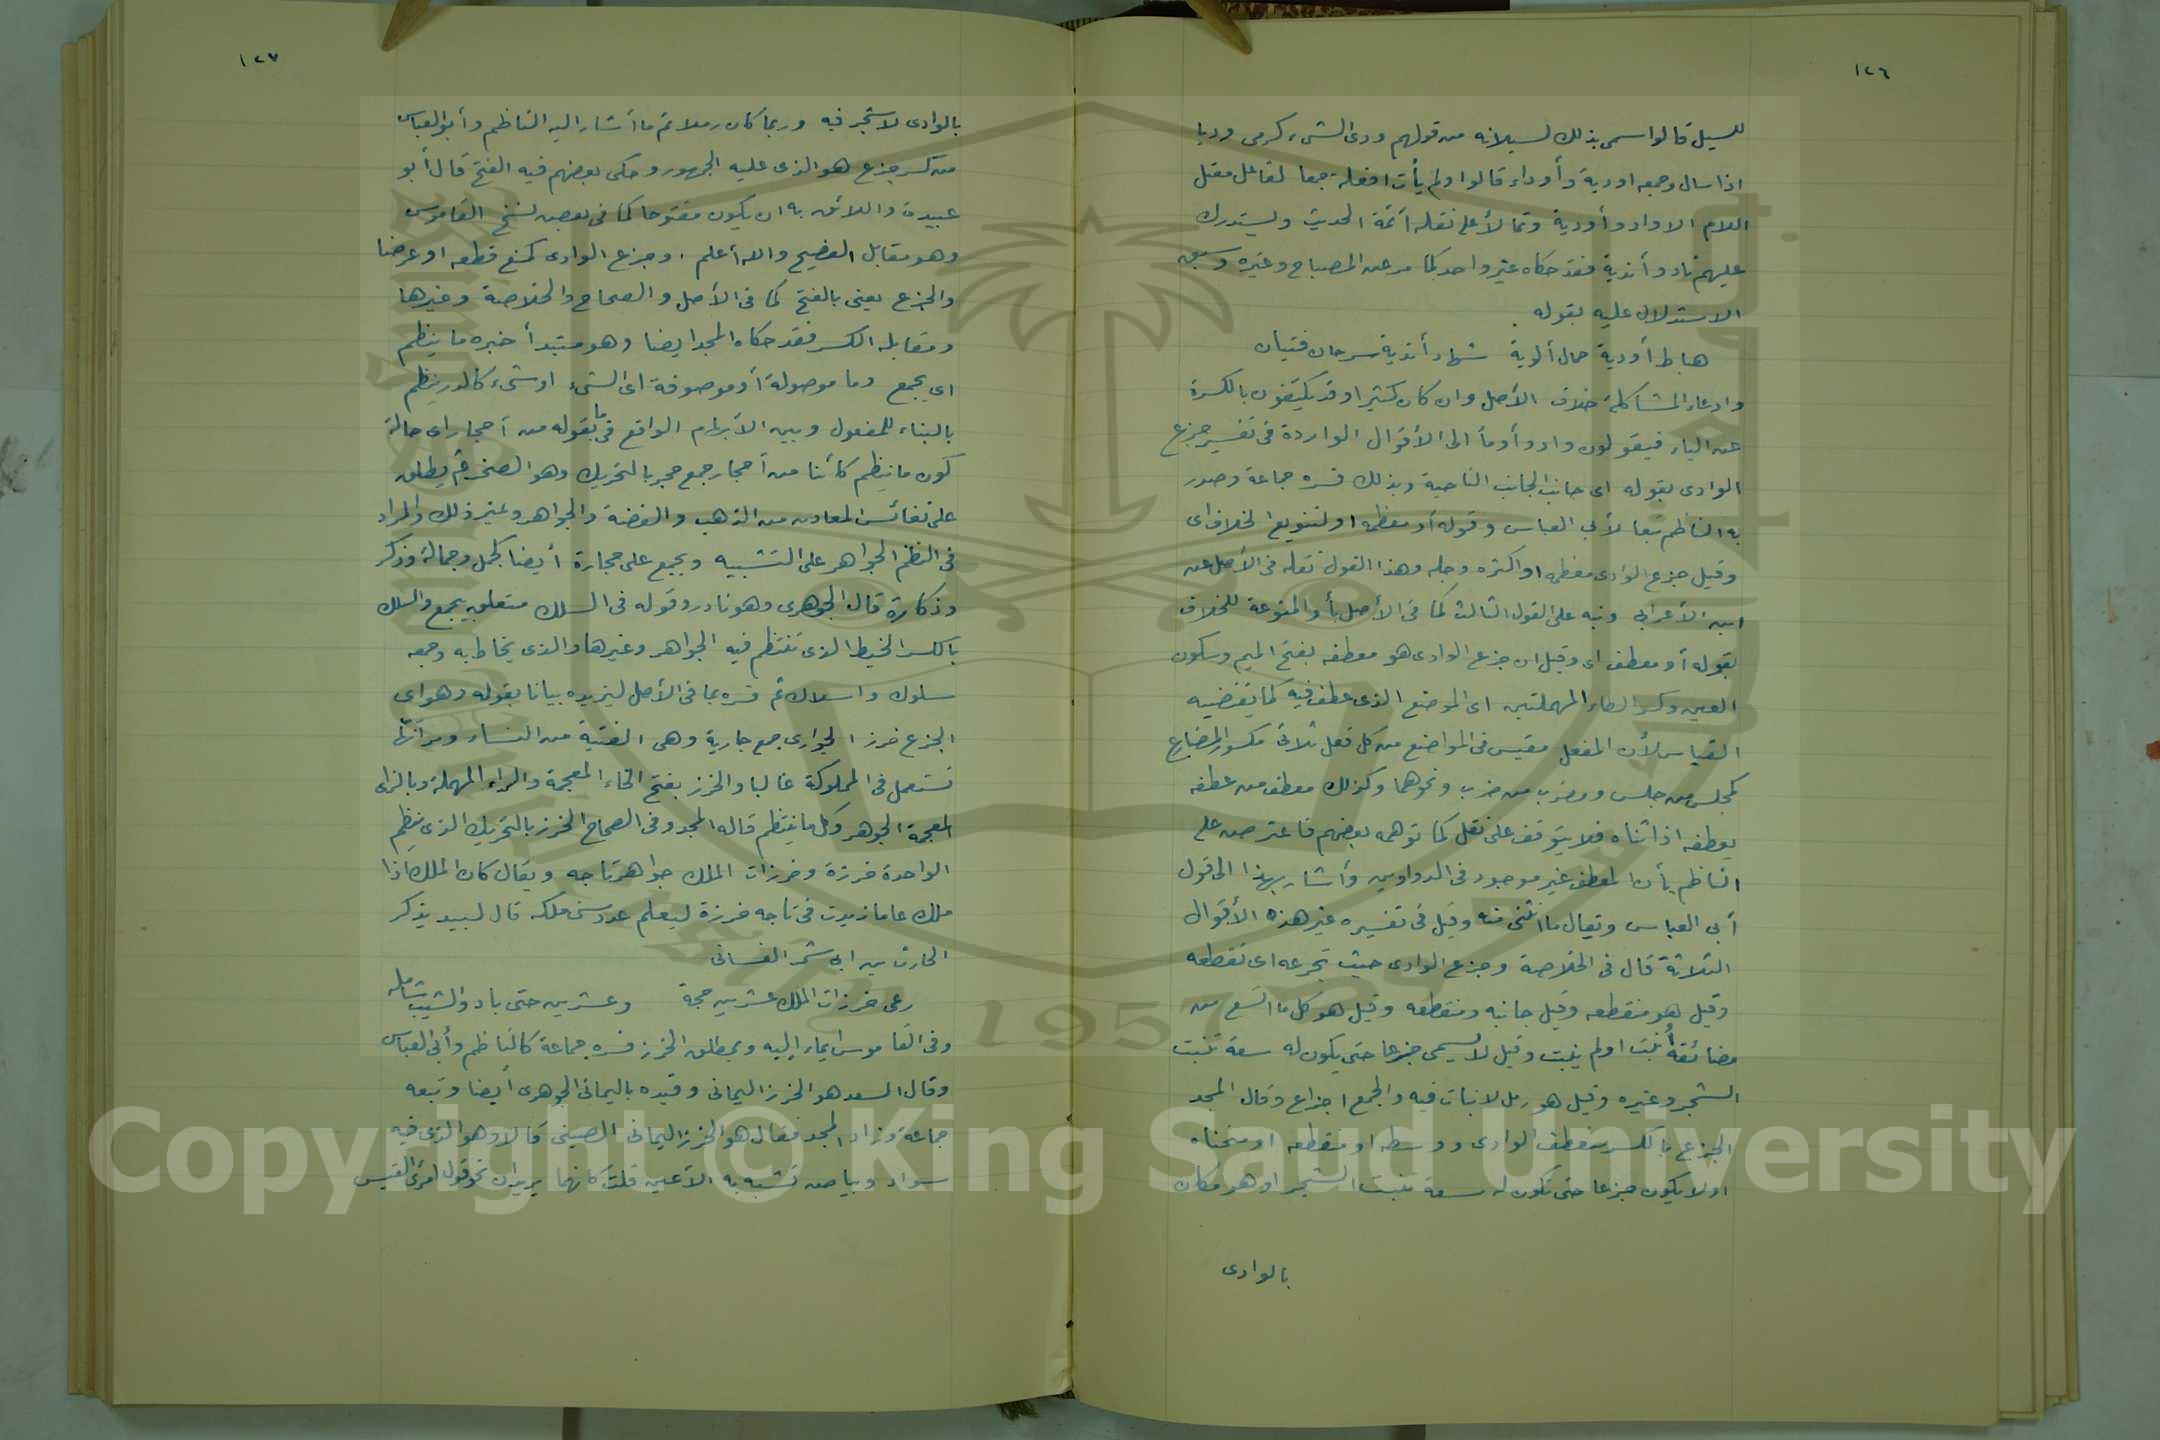 ١٢٦
للسيل قالوا سمى بذلك لسيلانه من قولهم ودى الشيء كرمى وديا
اذا سال وجمعه اودية وأوداء قالوا ولم يأت افعلة جمعا لفاعل معتل
اللام الا واد وأودية وتمالأ على نقله أئمة الحديث ويستدرك
عليهم ناد وأندية فقد حكاه غير واحد كما مر عن المصباح وغيره وسبق
الاستدلال عليه بقوله
هباط أودية حمال ألوية شهاد أندية سرحان فتيان
وادعاء المشاكلة خلاف الأصل وان كان كثيرا وقد يكتفون بالكسرة
عن الياء فيقولون واد وأومأ الى الأقوال الواردة فى تفسير جزع
الوادى بقوله اى جانب الجانب الناحية وبذلك فسره جماعة وصدر
به الناظم تبعا لأبى العباس وقوله أو معظمه او لتنويع الخلاف اى
وقيل جزع الوادى معظمه اواكثره وجله وهذا القول نقله فى الأصل عن
ابن الأعرابى ونبه على القول الثالث كما فى الأصل بأو المنوعة للخلاف
بقوله أو معطف اى وقيل ان جزع الوادى هو معطفه بفتح الميم وسكون
العين وكسر الطاء المهملتين اى الموضع الذى عطف فيه كما يقتضيه
القياس لأن المفعل مقيس فى المواضع من كل فعل ثلاثى مكسور المضارع
كمجلس من جلس ومضرب من ضرب ونحوهما وكذلك معطف من عطفه
يعطفه اذا ثناه فلا يتوقف على نقل كما توهمه بعضهم فاعترض على
الناظم بأن المعطف غير موجود فى الدواوين وأشار بهذا الى قول
أبى العباس ويقال ما انثنى منه وقيل فى تفسيره غير هذه الأقوال
الثلاثة قال فى الخلاصة وجزع الوادى حيث تجزعه اى تقطعه
وقيل هو منقطعه وقيل جانبه ومنقطعه وقيل هو كل ما اتسع من
مضائقه أنبت او لم ينبت وقيل لا يسمى جزعا حتى يكون له سعة تنبت
الشجر وغيره وقيل هو رمل لا نبات فيه والجمع اجزاع وقال المجد
الجزع بالكسر منعطف الوادى ووسطه او منقطعه او منحناه
او لا يكون جزعا حتى تكون له سعة تنبت الشجر او هو مكان
بالوادى
١٢٧
بالوادى لا شجر فيه وربما كان رملا ثم ما أشار اليه الناظم وأبو العباس
من كسر جزع هو الذى عليه الجمهور وحكى بعضهم فيه الفتح قال أبو
عبيدة واللائق به ان يكون مفتوحا كما فى بعض نسخ القاموس
وهو مقابل الفصيح والله أعلم . وجزع الوادى كمنع قطعه او عرضا
والجزع يعنى بالفتح كما فى الأصل والصحاح والخلاصة وغيرها
ومقابله الكسر فقد حكاه المجد ايضا وهو مبتدأ خبره ما ينظم
اى يجمع وما موصولة أو موصوفة اى الشيء او شيء كالدر ينظم
بالبناء للمفعول وبين الأبهام الواقع فى ما بقوله من أحجار اى حالة
كون ما ينظم كائنا من أحجار جمع حجر بالتحريك وهو الصخر ثم يطلق
على نفائس المعادن من الذهب والفضة والجواهر وغير ذلك والمراد
فى النظم الجواهر على التشبيه ويجمع على حجارة أيضا كجمل وجمالة وذكر
وذكارة قال الجوهرى وهو نادر وقوله فى السلك متعلق بيجمع والسلك
بالكسر الخيط الذى تنتظم فيه الجواهر وغيرها والذى يخاط به وجمعه
سلوك واسلاك ثم فسره بما فى الأصل ليزيده بيانا بقوله وهو اى
الجزع خرز الجوارى جمع جارية وهى الفتية من النساء
تستعمل فى المملوكة غالبا والخرز بفتح الخاء المعجمة والراء المهملة وبالزاى
المعجمة الجوهر وكل ما ينتظم قاله المجد وفى الصحاح الخرز بالتحريك الذى ينظم
الواحدة خرزة وخرزات الملك جواهر تاجه ويقال كان الملك اذا
ملك عاما زيدت فى تاجه خرزة ليعلم عدد سنى ملكه قال لبيد يذكر
الحارث بن ابى شمر الغسانى
رعى خرزات الملك عشرين حجة وعشرين حتى باد والشيب شامله
وفى القاموس ايماء إليه وبمطلق الخرز فسره جماعة كالناظم وأبى العباس
وقال السعد هو الخرز اليمانى وقيده باليمانى الجوهرى أيضا وتبعه
جماعة وزاد المجد فقال هو الخرز اليمانى الصينى قالا وهو الذى فيه
سواد وبياض تشبه به الأعين قلت كأنهما يريدان نحو قول امرئ القيس
Copyright © King Saud University
1957